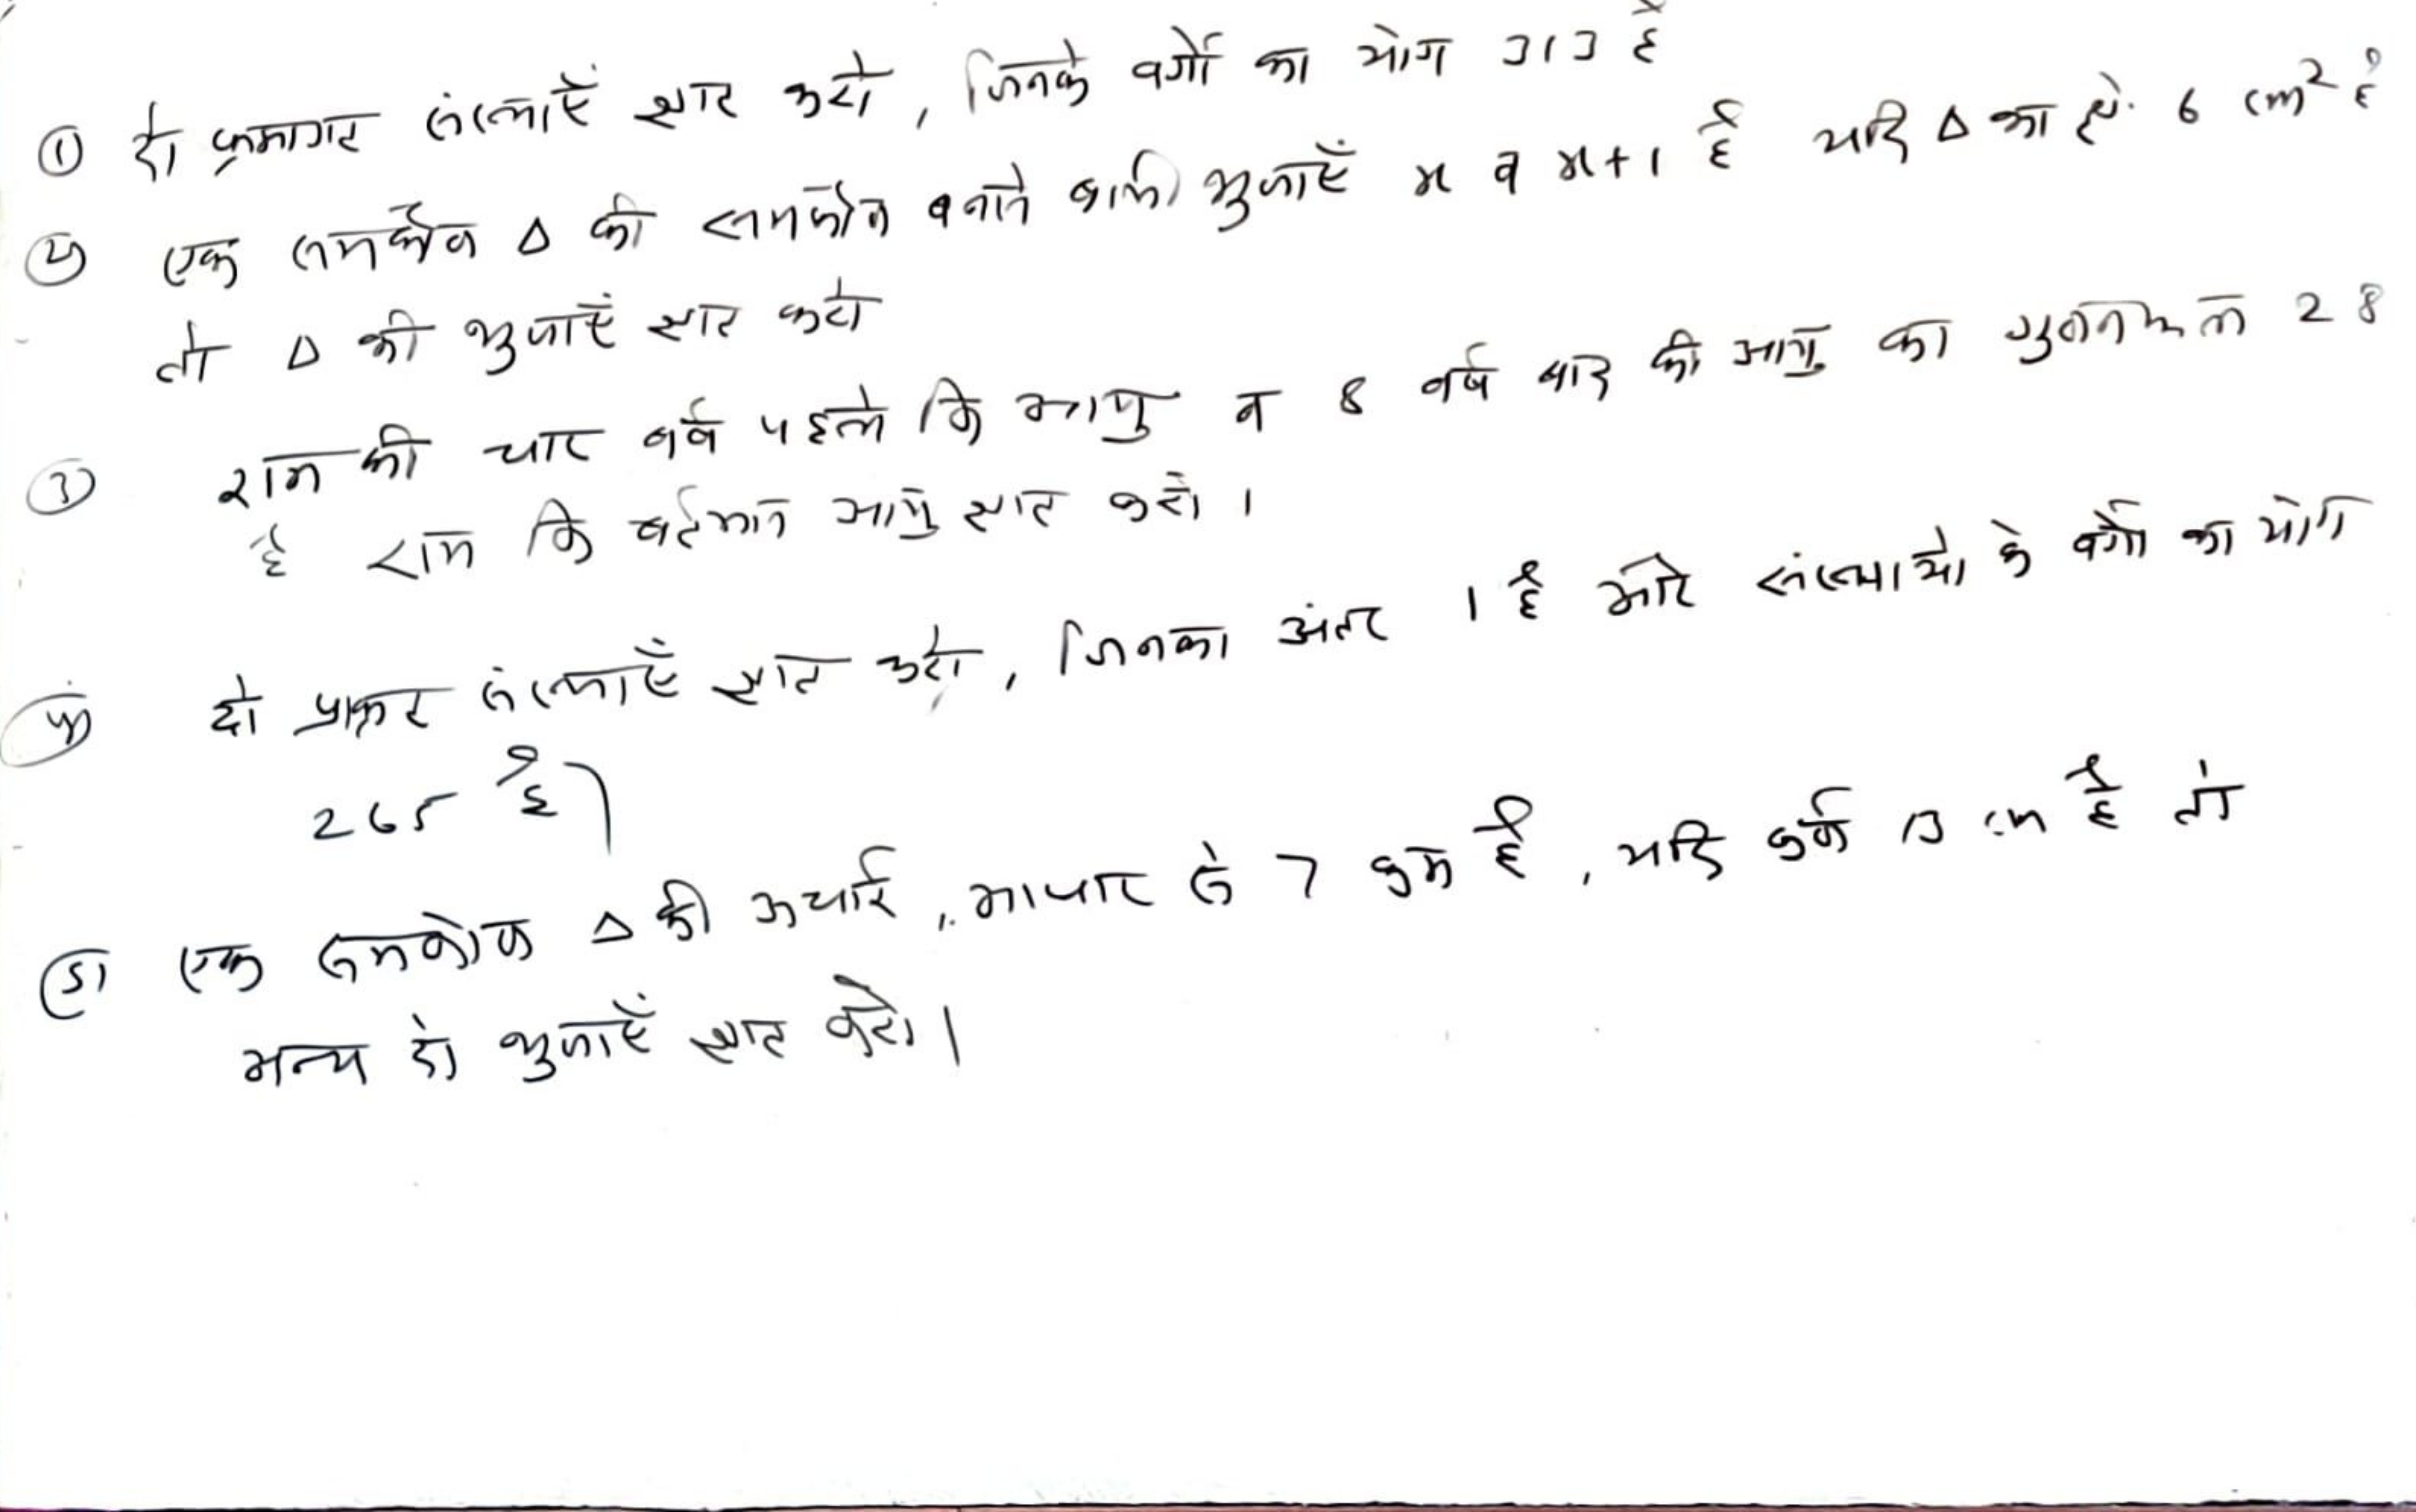 ① दो क्रमागत संख्याएँ ज्ञात करो, जिनके वर्गों का योग 313 है
② एक समकोण Δ की समकोण बनाने वाली भुजाएँ x व x+1 है यदि Δ का क्षे. 6 cm² है
तो Δ की भुजाएं ज्ञात करो
③ राम की चार वर्ष पहले कि आयु व 8 वर्ष बाद की आयु का गुणनफल 28
है राम कि वर्तमान आयु ज्ञात करो।
④ दो प्राकृत संख्याएँ ज्ञात करो, जिनका अंतर 1 है और संख्याओं के वर्गों का योग
265 है।
⑤ एक समकोण Δ की ऊचाई, आधार से 7 कम है, यदि कर्ण 13 cm है तो
अन्य दो भुजाएँ ज्ञात करो।